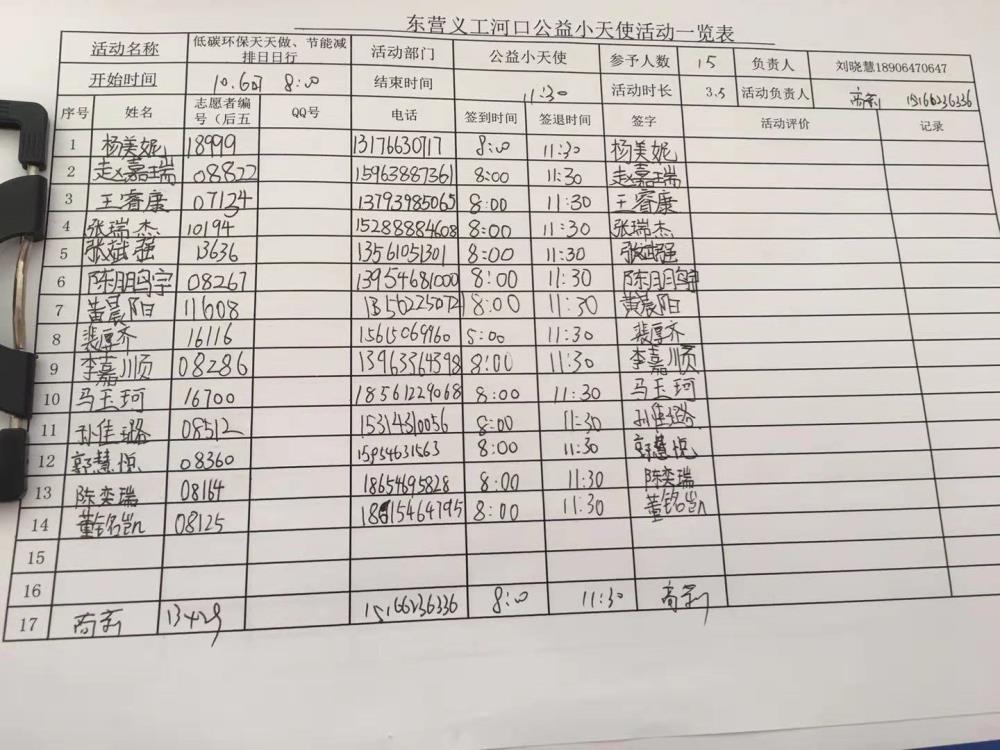 东营义工河口公益小天使活动一览表
活动名称 低碳环保天天做、节能减排日日行 活动部门 公益小天使 参予人数 15 负责人 刘晓慧18906470647
开始时间 10.6日 8:00 结束时间 11:30 活动时长 3.5 活动负责人 15166236336
序号 姓名 志愿者编号（后五 QQ号 电话 签到时间 签退时间 签字 活动评价 记录
1 杨美妮 18999 13176630717 8:00 11:30 杨美妮
2 赵嘉瑞 08822 15963887361 8:00 11:30 赵嘉瑞
3 王睿康 07124 13793985065 8:00 11:30 王睿康
4 张瑞杰 10194 15288884608 8:00 11:30 张瑞杰
5 张斌强 13636 13561051301 8:00 11:30 张斌强
6 陈鹏宇 08267 13954681000 8:00 11:30 陈鹏宇
7 黄晨阳 11608 13562250721 8:00 11:30 黄晨阳
8 裴厚齐 16116 15615069960 8:00 11:30 裴厚齐
9 李嘉顺 08286 13963364398 8:00 11:30 李嘉顺
10 马玉珂 16700 18561229068 8:00 11:30 马玉珂
11 孙佳璐 08512 15314310056 8:00 11:30 孙佳璐
12 郭慧悦 08360 15954631563 8:00 11:30 郭慧悦
13 陈奕瑞 08164 18654695828 8:00 11:30 陈奕瑞
14 董铭凯 08125 18615464795 8:00 11:30 董铭凯
15
16
17 13429 15166236336 8:00 11:30